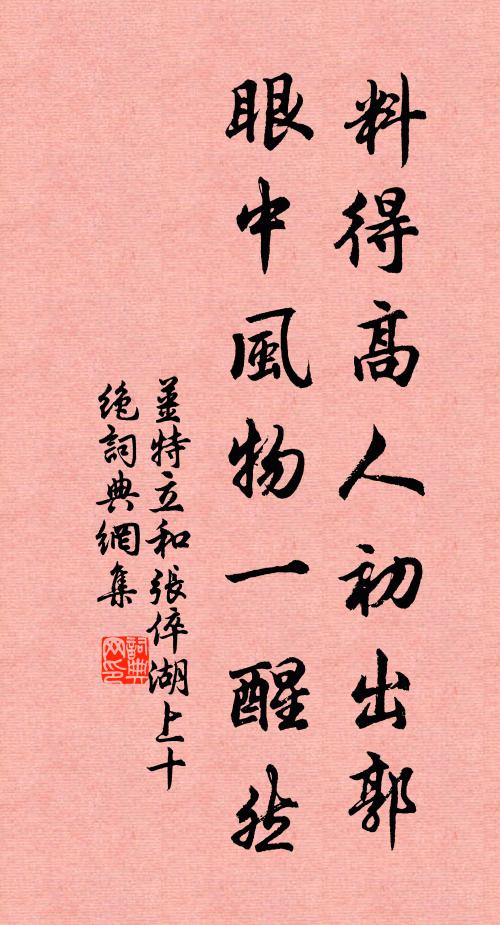 料得高人初出郭
眼中風物一醒然
姜特立和張倅湖上十
絶詞典網集
詞典網印